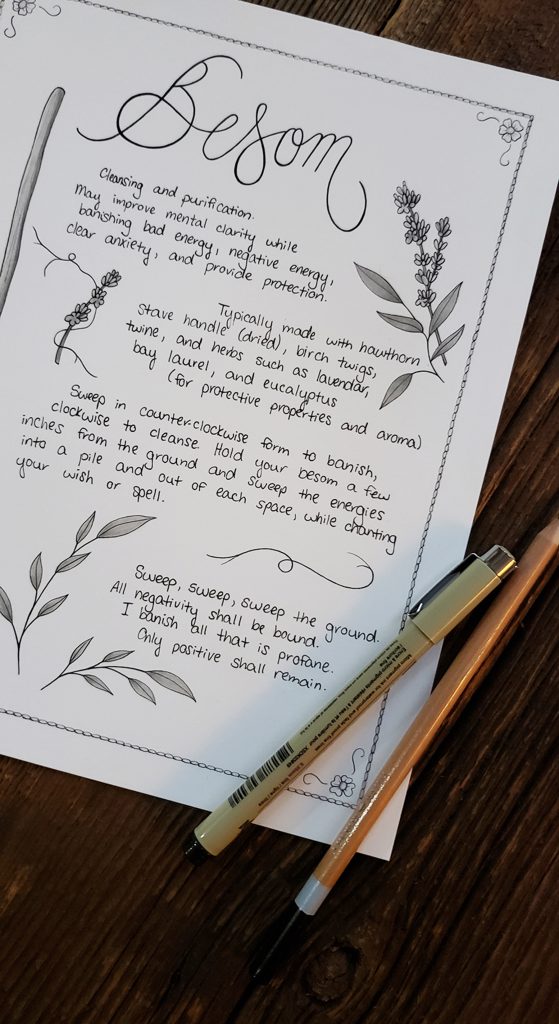 Besom
Cleansing and purification.
May improve mental clarity while
banishing bad energy, negative energy,
clear anxiety, and provide protection.
Typically made with hawthorn
stave handle (dried), birch twigs,
twine, and herbs such as lavendar,
bay laurel, and eucalyptus
(for protective properties and aroma)
Sweep in counter-clockwise form to banish,
clockwise to cleanse. Hold your besom a few
inches from the ground and sweep the energies
into a pile and out of each space, while chanting
your wish or spell.
Sweep, sweep, sweep the ground.
All negativity shall be bound.
I banish all that is profane.
Only positive shall remain.